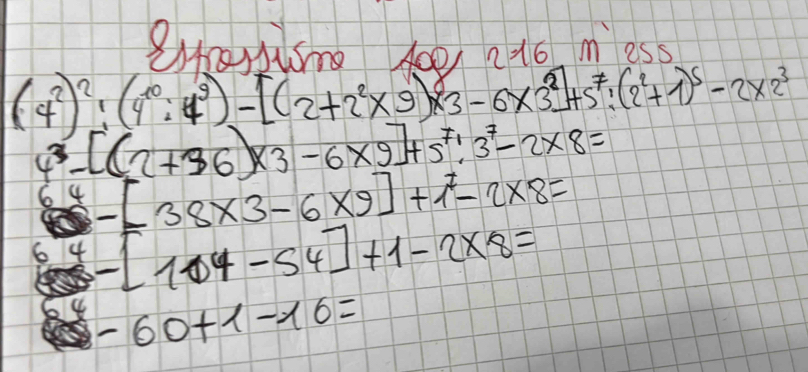 Espressione pag 216 n° 255
(4²)² : (4¹⁰ : 4⁹) - [(2 + 2² × 9) × 3 - 6 × 3²] + 5⁷ : (2² + 1)⁵ - 2 × 2³
4³ - [(2 + 36) × 3 - 6 × 9] + 5⁷ : 3⁷ - 2 × 8 =
64 - [38 × 3 - 6 × 9] + 1⁷ - 2 × 8 =
64 - [114 - 54] + 1 - 2 × 8 =
64 - 60 + 1 - 16 =